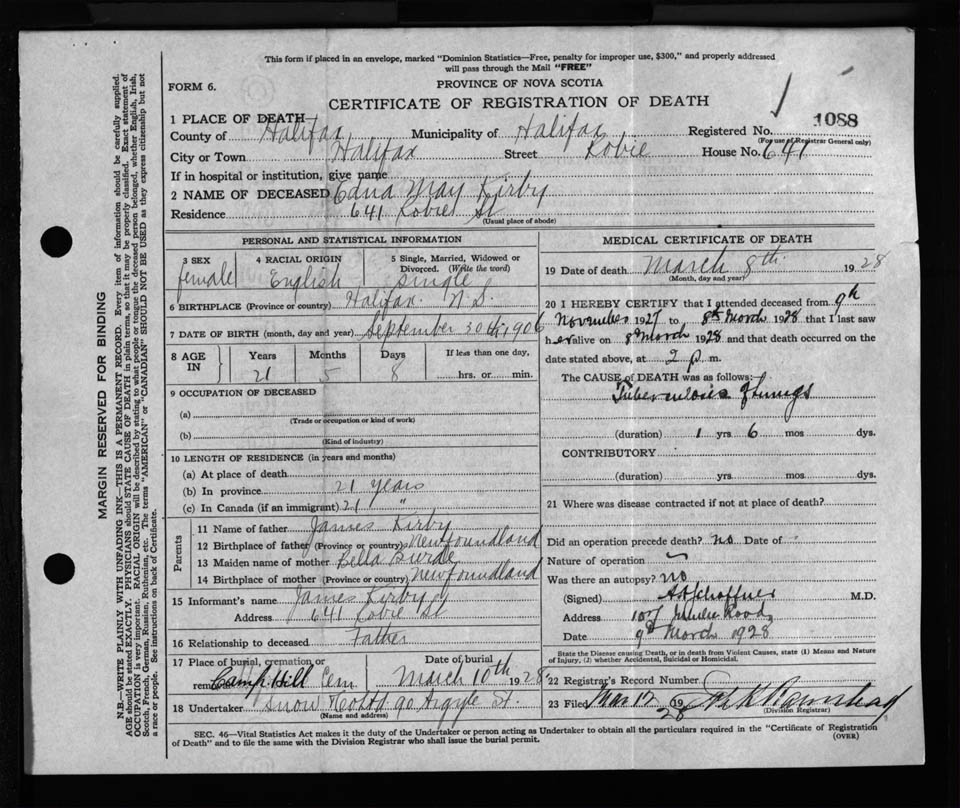 This form if placed in an envelope, marked "Dominion Statistics—Free, penalty for improper use, $300," and properly addressed
will pass through the Mail "FREE"
FORM 6.
PROVINCE OF NOVA SCOTIA
CERTIFICATE OF REGISTRATION OF DEATH
1088
1 PLACE OF DEATH
County of Halifax Municipality of Halifax Registered No.
(For use of Registrar General only)
City or Town Halifax Street Robie House No. 641
If in hospital or institution, give name
2 NAME OF DECEASED Edna May Kirby
Residence 641 Robie St
(Usual place of abode)
PERSONAL AND STATISTICAL INFORMATION
3 SEX 4 RACIAL ORIGIN 5 Single, Married, Widowed or
Divorced. (Write the word)
female English Single
6 BIRTHPLACE (Province or country) Halifax. N.S.
7 DATE OF BIRTH (month, day and year) September 30th, 1906
8 AGE IN Years Months Days If less than one day,
21 5 8 hrs. or min.
9 OCCUPATION OF DECEASED
(a)
(Trade or occupation or kind of work)
(b)
(Kind of industry)
10 LENGTH OF RESIDENCE (in years and months)
(a) At place of death
(b) In province 21 years
(c) In Canada (if an immigrant) 21 "
Parents
11 Name of father James Kirby
12 Birthplace of father (Province or country) Newfoundland
13 Maiden name of mother Bella
14 Birthplace of mother (Province or country) Newfoundland
15 Informant's name James Kirby
Address 641 Robie St
16 Relationship to deceased Father
17 Place of burial, cremation or Date of burial
removal Camp Hill Cem March 10th 1928
18 Undertaker Snow & Co Ltd 90 Argyle St.
(Name and address)
MEDICAL CERTIFICATE OF DEATH
19 Date of death March 8th. 1928
(Month, day and year)
20 I HEREBY CERTIFY that I attended deceased from 9th
November 1927 to 8th March 1928 that I last saw
her alive on 8 March 1928 and that death occurred on the
date stated above, at 2 p m.
The CAUSE of DEATH was as follows:
Tuberculosis of lungs
(duration) 1 yrs 6 mos dys.
CONTRIBUTORY
(duration) yrs mos dys.
21 Where was disease contracted if not at place of death?
Did an operation precede death? no Date of
Nature of operation
Was there an autopsy? no
(Signed) M.D.
Address 107 Road
Date 9th March 1928
State the Disease causing Death, or in death from Violent Causes, state (1) Means and Nature
of Injury, (2) whether Accidental, Suicidal or Homicidal.
22 Registrar's Record Number
23 Filed Mar 12 1928
(Division Registrar)
SEC. 46—Vital Statistics Act makes it the duty of the Undertaker or person acting as Undertaker to obtain all the particulars required in the "Certificate of Registration
of Death" and to file the same with the Division Registrar who shall issue the burial permit. (OVER)
MARGIN RESERVED FOR BINDING
N.B.—WRITE PLAINLY WITH UNFADING INK—THIS IS A PERMANENT RECORD. Every item of information should be carefully supplied.
AGE should be stated EXACTLY. PHYSICIANS should STATE CAUSE OF DEATH in plain terms, so that it may be properly classified. Exact statement of
OCCUPATION is very important. RACIAL ORIGIN will be described by stating to what people or tongue the deceased person belonged, whether English, Irish,
Scotch, French, German, Russian, Ruthenian, etc. The terms "AMERICAN" or "CANADIAN" SHOULD NOT BE USED as they express citizenship but not
a race or people. See instructions on back of Certificate.